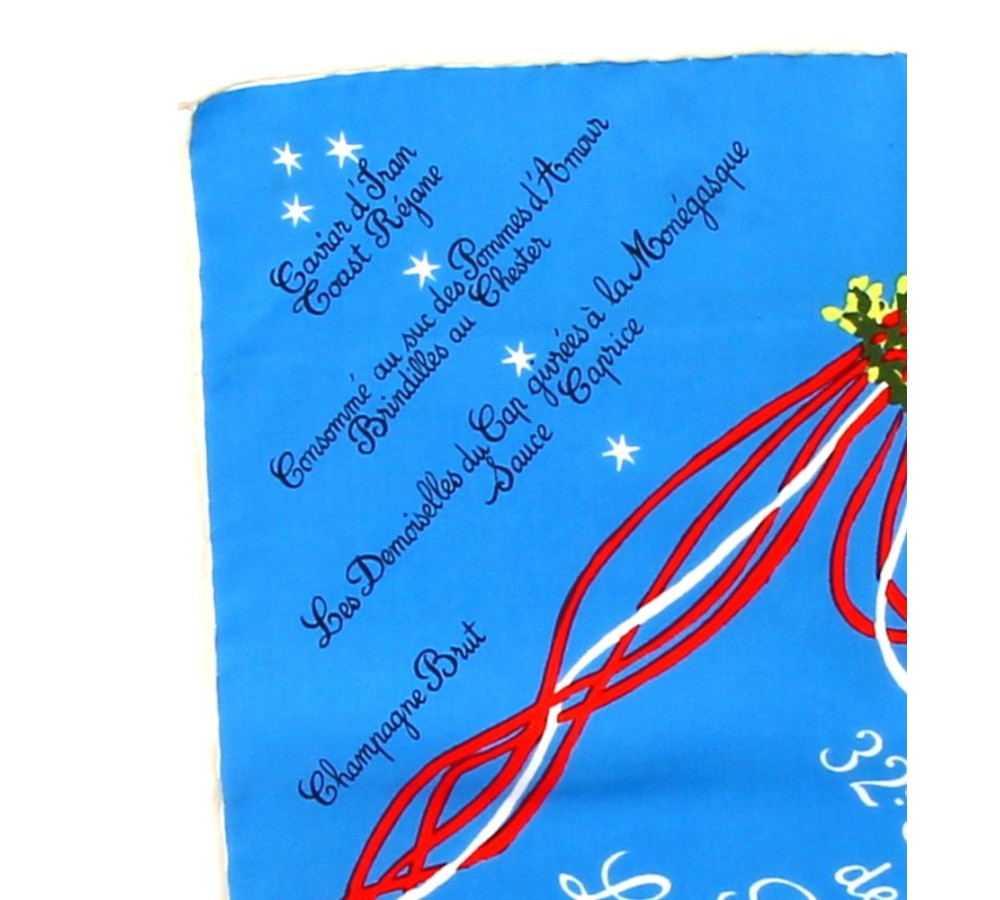 Caviar d'Iran
Toast Réjane
Consommé au suc des Pommes d'Amour
Brindilles au Chester
Les Demoiselles du Cap givrées à la Monégasque
Sauce Caprice
Champagne Brut
32
de